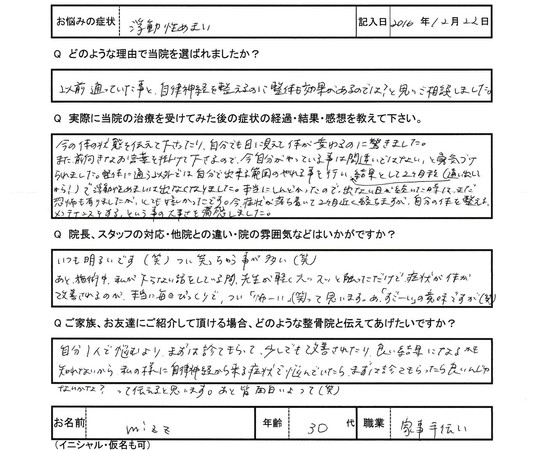 お悩みの症状 浮動性めまい 記入日 2016年12月22日
Q どのような理由で当院を選ばれましたか？
以前通っていた事と、自律神経を整えるのに整体も効果があるのでは？と思いご相談しました。
Q 実際に当院の治療を受けてみた後の症状の経過・結果・感想を教えて下さい。
今の体の状態を伝えて下さったり、自分でも目に見えて体が変わるのに驚きました。
また前向きなお言葉を掛けて下さるので、今自分がやっている事は間違いではない、と勇気づけ
られました。他にも通う以外では自分で出来る範囲のやれる事を行い、結果として2ヶ月を(通い出し
から！)で浮動性めまいは出なくなりました。本当にしんどかったので、出ない日が続いた時は、まだ
恐怖もありましたが、とても嬉しかったです。今症状が落ち着いて2ヶ月近く経ちますが、自分の体を整える、
メンテナンスをする、という事の大事さを痛感しました。
Q 院長、スタッフの対応・他院との違い・院の雰囲気などはいかがですか？
いつも明るいです(笑) つい笑っちゃう事が多い(笑)
あと、施術中、私が下らない話をしている間、先生が軽く触っただけで、症状や体が
改善されるのが、本当に毎日びっくりで、つい (笑)って思います。あ、「すごーい」の意味ですが(笑)
Q ご家族、お友達にご紹介して頂ける場合、どのような整骨院と伝えてあげたいですか？
自分1人で悩むより、まずは診てもらって、少しでも改善されたり、良い結果になるかも
知れないから、私の様に自律神経から来る症状で悩んでいたら、まずは診てもらったら良いんじゃ
ないかな？ って伝えると思います。あと皆面白いよって(笑)
お名前 mizz 年齢 30代 職業 家事手伝い
(イニシャル・仮名も可)